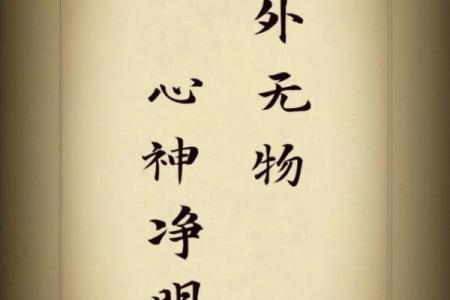 外无物
心神净明